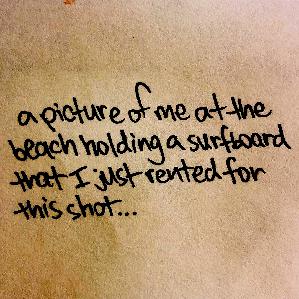 a picture of me at the
beach holding a surfboard
that I just rented for
this shot...